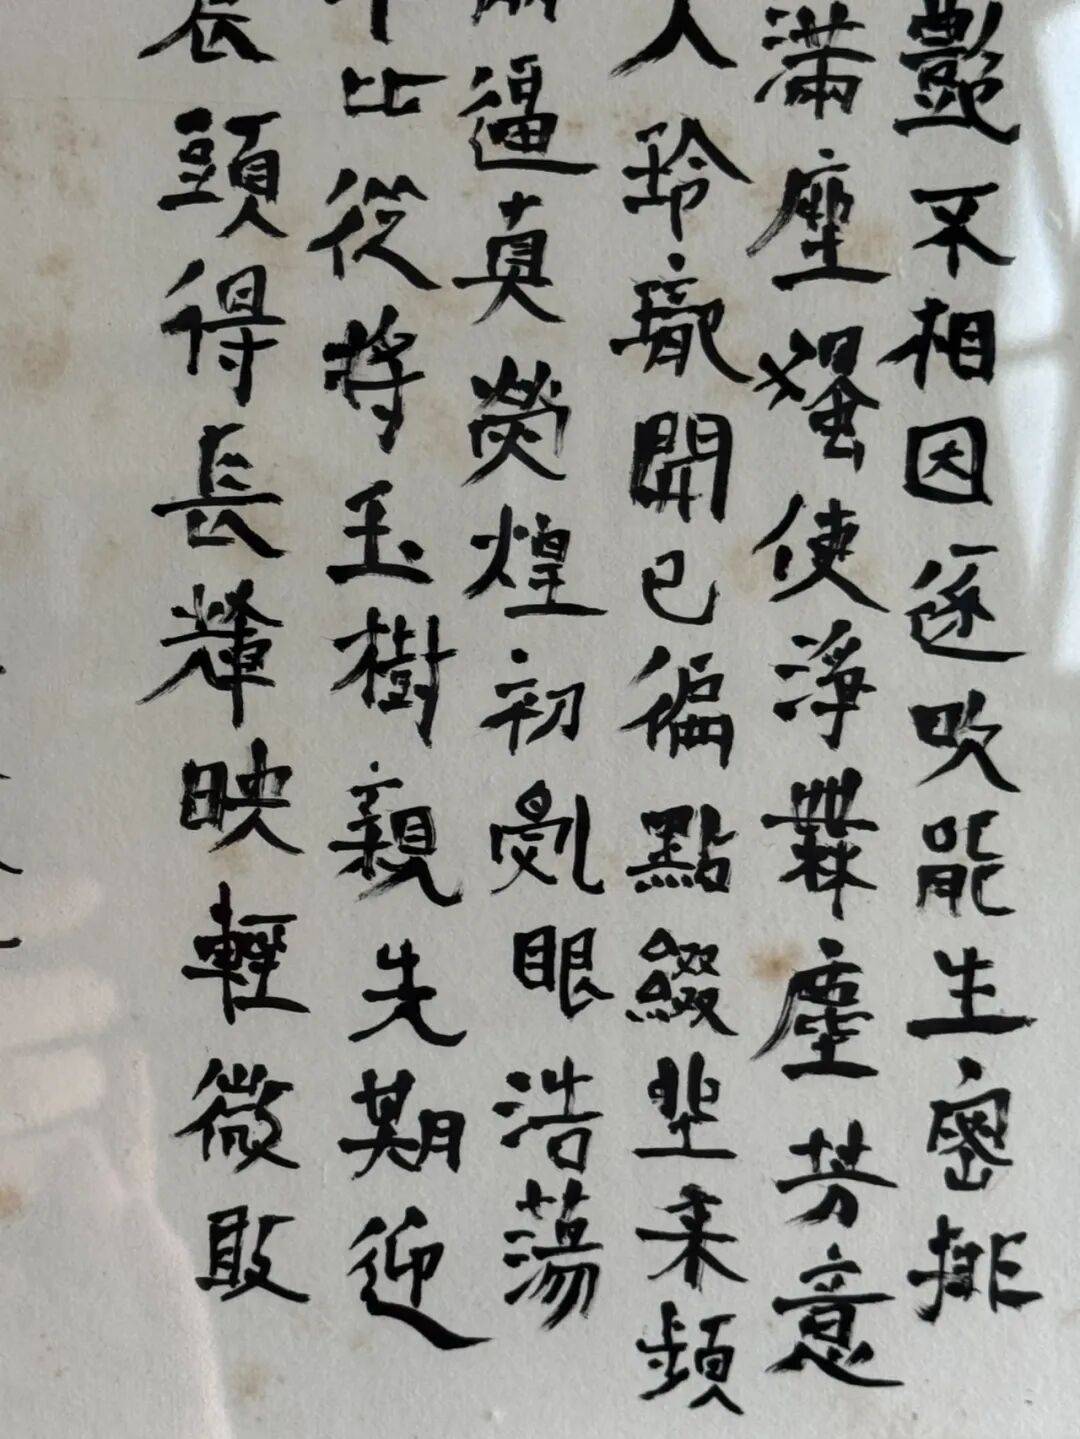 艷不相因逐吹能生密排
滿座獨使淨無塵芳意
人玲瓏開已徧點綴坐来頻
逼真熒煌初亂眼浩蕩
比從將玉樹親先期迎
長頭得長輝映輕微敢